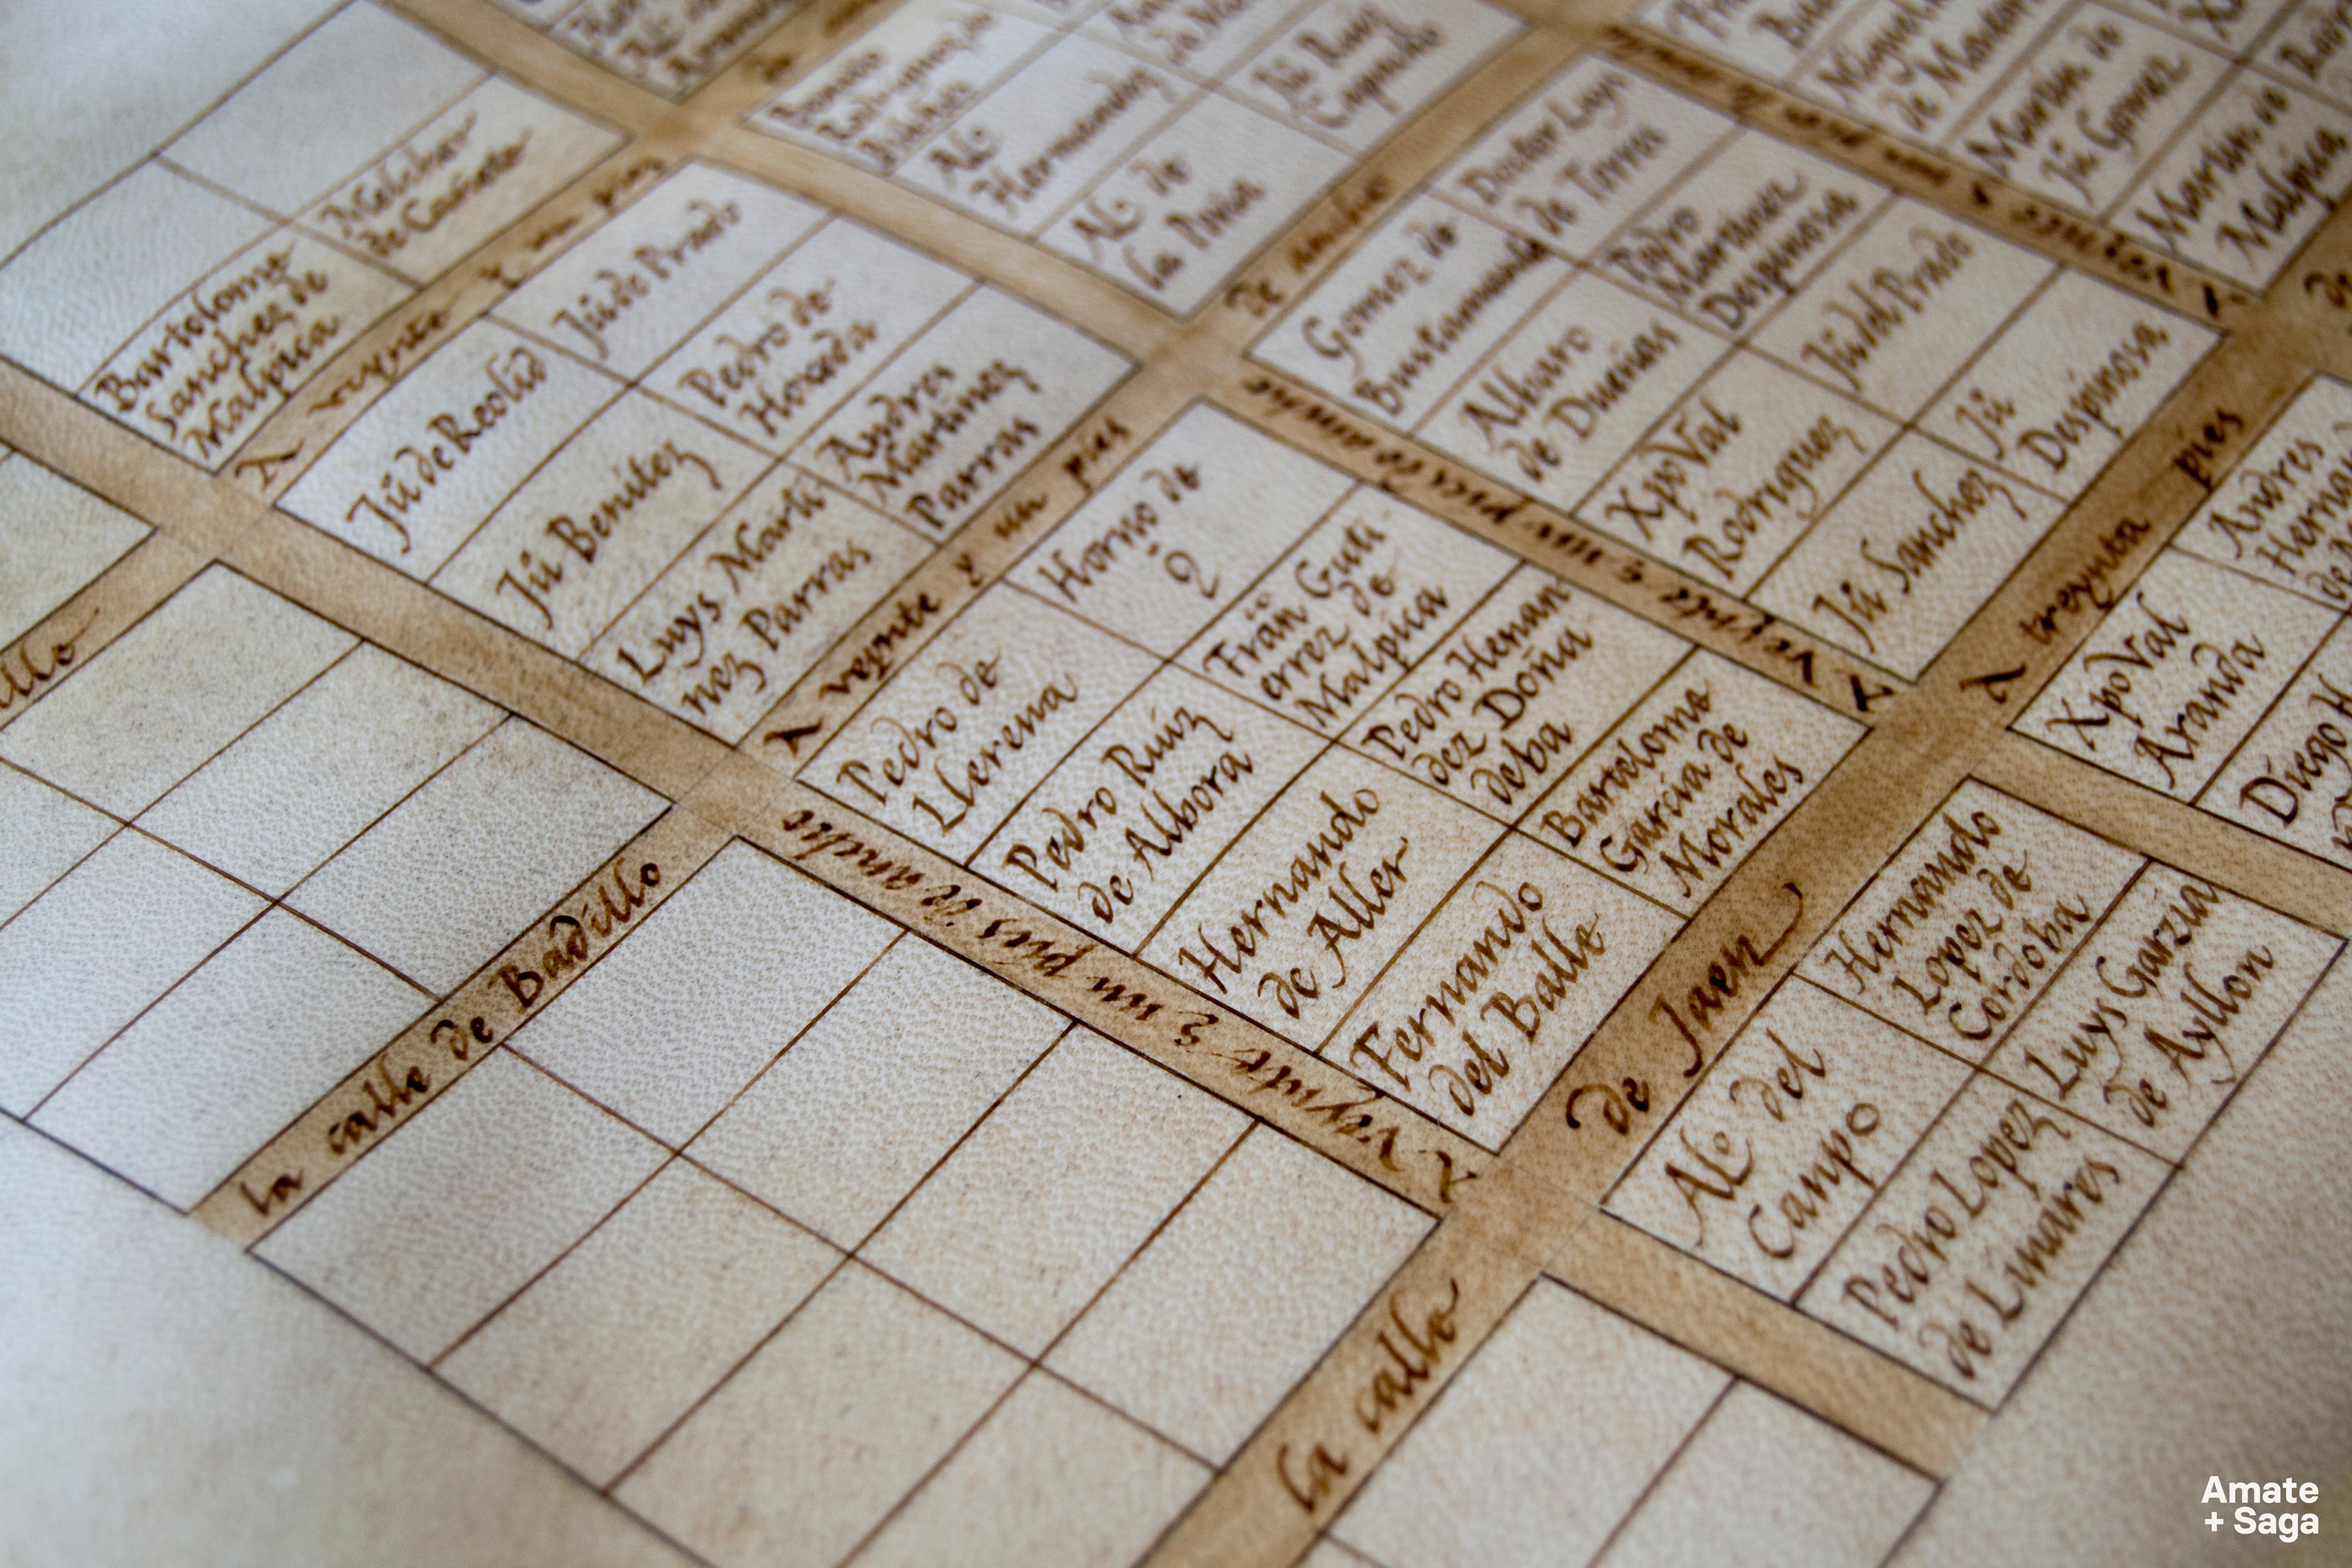 Melchor
de Cañete
Bartolome
Sanchez de
Malpica
A veynte y un pies
Jũ de Prado
Jũ de Reolid
Pedro de
Horada
Jũ Benitez
Andres
Martinez
Parras
Luys Marti
nez Parras
Al.º
Hernandez
Al.º de
la Pina
Jũ Ruiz
de ancho
Doctor Luys
de Torre
Gomez de
Bustamante
Pedro
Martinez
Despinosa
Alvaro
de Dueñas
Jũ del Prado
XpoVal
Rodriguez
Jũ
Despinosa
Jũ Sanchez
Martin de
Jũ Gomez
Martin de
Malpica
A veynte y un pies
Horno de
Q
Pedro de
Llerena
Frãn Guti
errez de
Malpica
Pedro Ruiz
de Albora
Pedro Hernan
dez Doña
deba
Hernando
de Aller
Bartolome
Garcia de
Morales
Fernando
del Balle
A veynte e un pies de ancho
A veynte e un pies de ancho
A treynta pies
Andres
XpoVal
Aranda
Diego
Hernando
Lopez de
Cordoba
Al.º del
Campo
Luys Garzia
de Ayllon
Pedro Lopez
de Linares
la calle de Badillo
la calle de Jaen
Amate
+ Saga